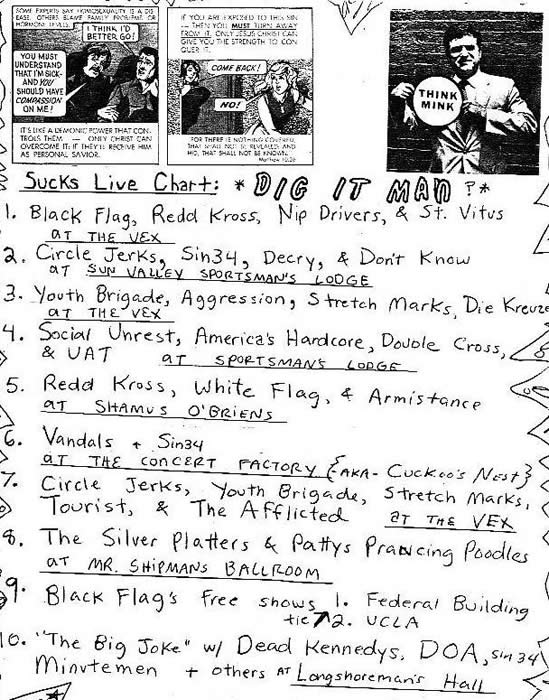 SOME EXPERTS SAY HOMOSEXUALITY IS A DIS-
EASE. OTHERS BLAME FAMILY PROBLEMS OR
HORMONE LEVELS.
I THINK I'D
BETTER GO!
YOU MUST
UNDERSTAND
THAT I'M SICK-
AND YOU
SHOULD HAVE
COMPASSION
ON ME!
IT'S LIKE A DEMONIC POWER THAT CON-
TROLS THEM — ONLY CHRIST CAN
OVERCOME IT. IF THEY'LL RECEIVE HIM
AS PERSONAL SAVIOR.
IF YOU ARE EXPOSED TO THIS SIN
— THEN YOU MUST TURN AWAY
FROM IT. ONLY JESUS CHRIST CAN
GIVE YOU THE STRENGTH TO CON-
QUER IT.
COME BACK!
NO!
FOR THERE IS NOTHING COVERED,
THAT SHALL NOT BE REVEALED; AND
HID, THAT SHALL NOT BE KNOWN.
Matthew 10:26
THINK
MINK
Sucks Live Chart: * DIG IT MAN?*
1. Black Flag, Redd Kross, Nip Drivers, & St. Vitus
AT THE VEX
2. Circle Jerks, Sin34, Decry, & Don't Know
AT SUN VALLEY SPORTSMAN'S LODGE
3. Youth Brigade, Aggression, Stretch Marks, Die Kreuze
AT THE VEX
4. Social Unrest, America's Hardcore, Double Cross,
& UAT AT SPORTSMANS LODGE
5. Redd Kross, White Flag, & Armistance
AT SHAMUS O'BRIENS
6. Vandals + Sin34
AT THE CONCERT FACTORY {AKA- Cuckoo's Nest}
7. Circle Jerks, Youth Brigade, Stretch Marks,
Tourist, & The Afflicted AT THE VEX
8. The Silver Platters & Pattys Prancing Poodles
AT MR. SHIPMANS BALLROOM
9. Black Flag's free shows 1. Federal Building
tie 2. UCLA
10. "The Big Joke" w/ Dead Kennedys, DOA, Sin 34
Minutemen + others AT Longshoreman's Hall